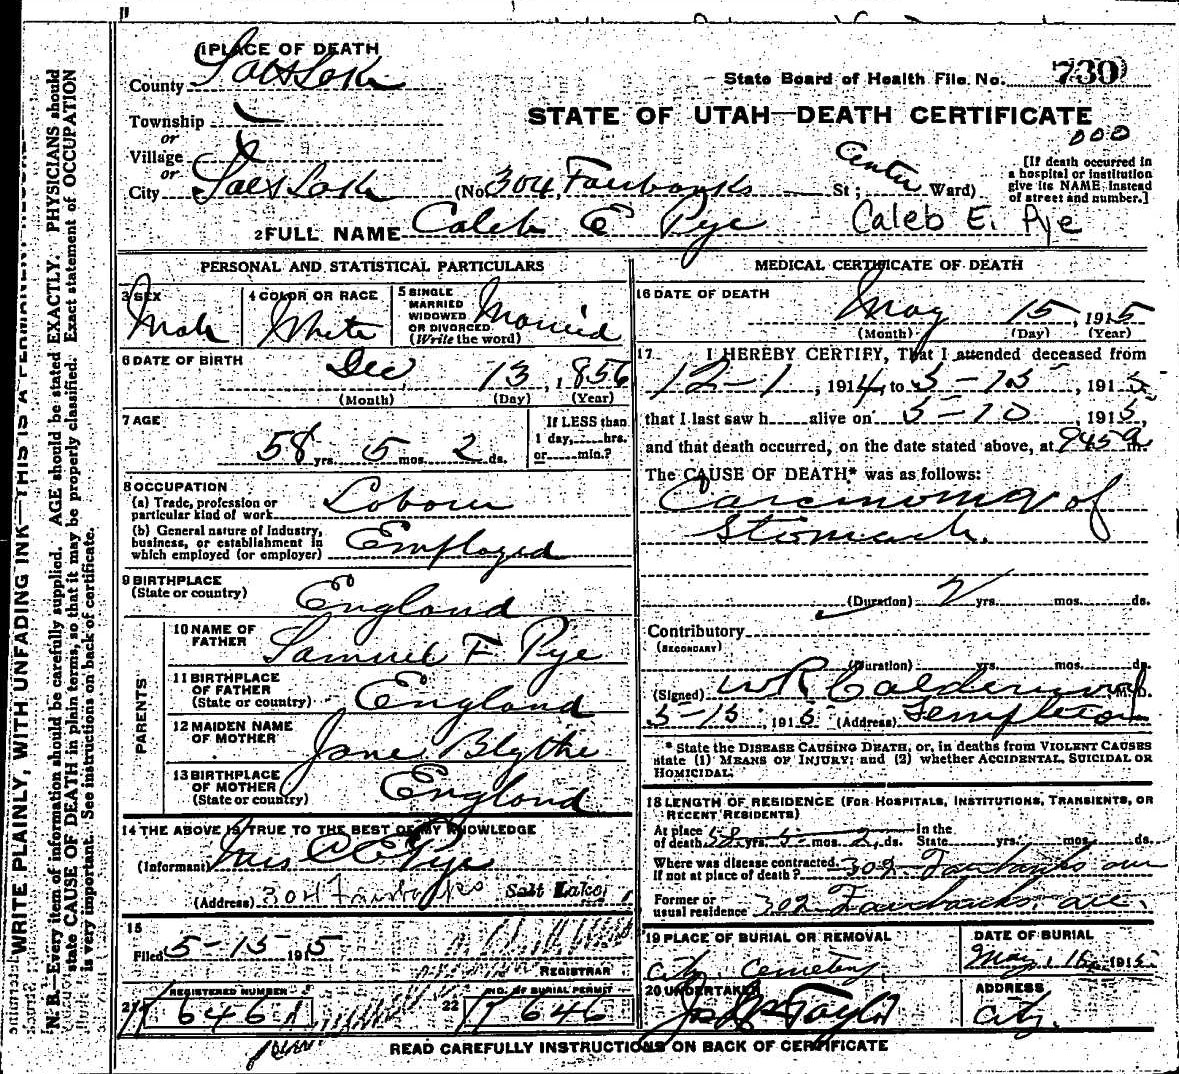 1 PLACE OF DEATH
County Salt Lake
State Board of Health File No. 730
Township
or
Village
or
STATE OF UTAH—DEATH CERTIFICATE
000
City Salt Lake (No. 304, Fairbanks St; Center Ward)
[If death occurred in
a hospital or institution
give its NAME, instead
of street and number.]
2 FULL NAME Caleb E Pye Caleb E. Pye
PERSONAL AND STATISTICAL PARTICULARS
3 SEX
Male
4 COLOR OR RACE
White
5 SINGLE
MARRIED
WIDOWED
OR DIVORCED
(Write the word)
Married
6 DATE OF BIRTH
Dec 13, 1856
(Month) (Day) (Year)
7 AGE
58 yrs. 5 mos. 2 ds.
If LESS than
1 day,......hrs.
or......min.?
8 OCCUPATION
(a) Trade, profession or
particular kind of work Laborer
(b) General nature of Industry,
business, or establishment in
which employed (or employer) Employed
9 BIRTHPLACE
(State or country) England
PARENTS
10 NAME OF
FATHER Samuel F Pye
11 BIRTHPLACE
OF FATHER
(State or country) England
12 MAIDEN NAME
OF MOTHER Jane Blythe
13 BIRTHPLACE
OF MOTHER
(State or country) England
14 THE ABOVE IS TRUE TO THE BEST OF MY KNOWLEDGE
(Informant) Mrs C E Pye
(Address) 304 Fairbanks Salt Lake
15
Filed 5-15 1915
REGISTRAR
REGISTERED NUMBER
21 646
NO. OF BURIAL PERMIT
22 646
MEDICAL CERTIFICATE OF DEATH
16 DATE OF DEATH
May 15, 1915
(Month) (Day) (Year)
17 I HEREBY CERTIFY, That I attended deceased from
12-1, 1914, to 5-15, 1915,
that I last saw h...... alive on 5-10 1915,
and that death occurred, on the date stated above, at 945 a m.
The CAUSE OF DEATH* was as follows:
Carcinoma of
Stomach.
(Duration) 2 yrs. mos. ds.
Contributory
(SECONDARY)
(Duration) yrs. mos. ds.
(Signed) W R Calderwood M.D.
5-15, 1915 (Address) Templeton
* State the DISEASE CAUSING DEATH, or, in deaths from VIOLENT CAUSES
state (1) MEANS OF INJURY; and (2) whether ACCIDENTAL, SUICIDAL OR
HOMICIDAL.
18 LENGTH OF RESIDENCE (FOR HOSPITALS, INSTITUTIONS, TRANSIENTS, OR
RECENT RESIDENTS)
At place
of death 58 yrs. 5 mos. 2 ds. In the
State yrs. mos. ds.
Where was disease contracted,
if not at place of death? 302 Fairbanks ave
Former or
usual residence 302 Fairbanks ave.
19 PLACE OF BURIAL OR REMOVAL
City Cemetery
DATE OF BURIAL
May 16, 1915
20 UNDERTAKER
Jos Wm Taylor
ADDRESS
City.
READ CAREFULLY INSTRUCTIONS ON BACK OF CERTIFICATE
WRITE PLAINLY, WITH UNFADING INK—THIS IS A PERMANENT RECORD
N. B.—Every item of information should be carefully supplied. AGE should be stated EXACTLY. PHYSICIANS should
state CAUSE OF DEATH in plain terms, so that it may be properly classified. Exact statement of OCCUPATION
is very important. See instructions on back of certificate.